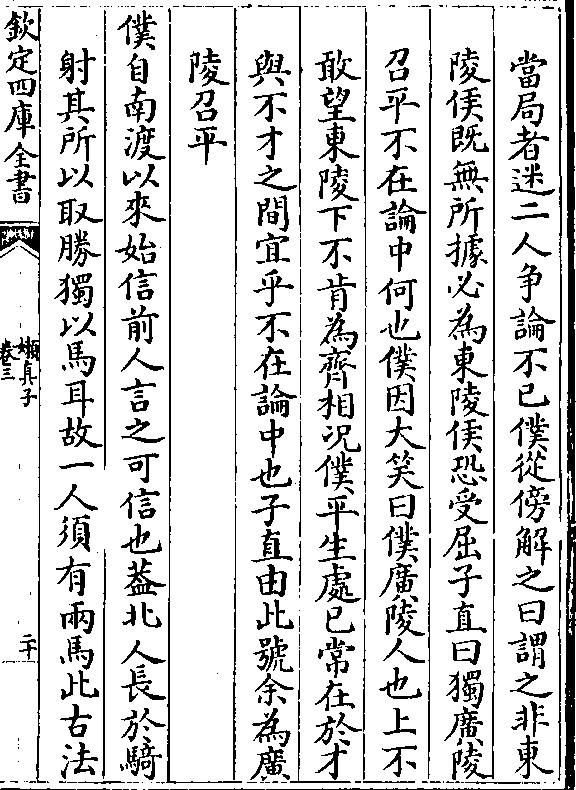 當局者迷二人争論不已僕從傍解之曰謂之非東
陵侯既無所據必為東陵侯恐受屈子直曰獨廣陵
召平不在論中何也僕因大笑曰僕廣陵人也上不
敢望東陵下不肯為齊相况僕平生處已常在於才
與不才之間宜乎不在論中也子直由此號余為廣
陵召平
僕自南渡以來始信前人言之可信也蓋北人長於騎
射其所以取勝獨以馬耳故一人須有兩馬此古法
欽定四庫全書
嬾真子
卷三
二十